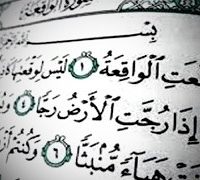 سُورَةُ الْوَاقِعَةِ
بِسْـ
ـعَتِ ٱلْوَاقِعَةُ ١ لَيْسَ لِوَقْعَتِهَا كَا
إِذَا رُجَّتِ ٱلْأَرْضُ رَجًّا ٤ وَ
هَبَآءً مُّنۢبَثًّا ٦ وَكُنتُمْ أَزْ